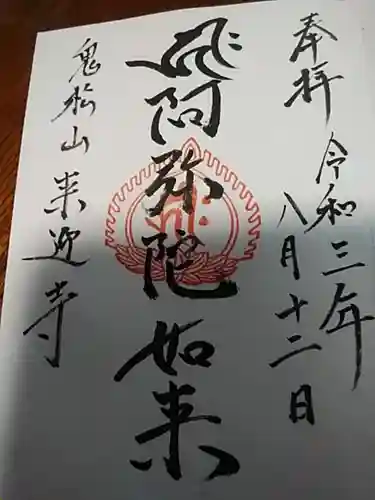 奉拝
令和三年
八月十二日
阿弥陀如来
鬼松山来迎寺